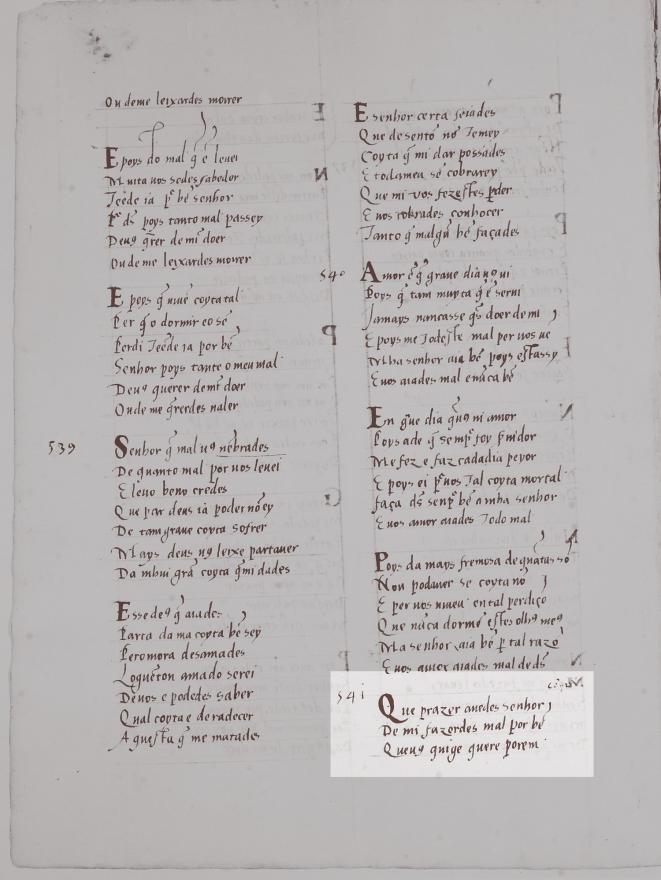 Ou deme leixardes morrer
E poys do mal q̄ ē leuei
Muita uos sedes sabedor
Teēde ia pʳ bē senhor
Pʳ ds̄ poys tanto mal passey
Deuꝯ q̄rer de mī doer
Ou de me leyxardes morrer
E poys q̄ uiuē coyta tal
Per q̄ o dormir eo sē
Perdi Teēde ia por bē
Senhor poys tanto o meu mal
Deuꝯ querer demī doer
Ou de me q̄rerdes ualer
539
Senhor q̄ mal uꝯ nēbrades
De quanto mal por uos leuei
E leuo beno credes
Que par deus ia poder nō ey
De tam graue coyta sofrer
Mays deus uꝯ leixe partauer
Da mhui grā coyta q̄mi dades
E sse deꝯ q̄ aiades
Parca da ma coyta bē sey
Pero mora desamades
Logueton amado serei
De uos e podedes saber
Qual coyta e de radecer
A questa q̄ me matades
E senhor certa seiades
Que desentō nō Temey
Coyta q̄ mi dar possades
E todamen sē cobrarey
Que mi uos fezestes ꝑder
E uos cobrades conhocer
Tanto q̄ malgū bē façades
540
Amor ē q̄ graue dia uo ui
Poys q̄ tam muyta q̄ ē serui
Jamays nuncasse q̄s doer de mi
E poys me Todeste mal per uos ue
Mha senhor aia bē poys estassy
E uos aiades mal e nūca bē
En g̃ue dia q̄uꝯ ui amor
Poys ade q̄ semp̄ foy s̄uidor
Me fez e faz cadadia peyor
E poys ei pʳuos Tal coyta mortal
faça ds̄ senp̄ bē amha senhor
E uos amor aiades Todo mal
Poys da mays fremosa de quātas sō
Non podauer se coyta nō
E per uos uiueu en tal perdiçō
Que nūca dormē estes olhꝯ meꝯ
Ma senhor aia bē ꝑ tal razō
E uos auiex aiades mal de ds̄
541
Que prazer auedes senhor
De mi fazerdes mal por bē
Queuꝯ quige quere porem